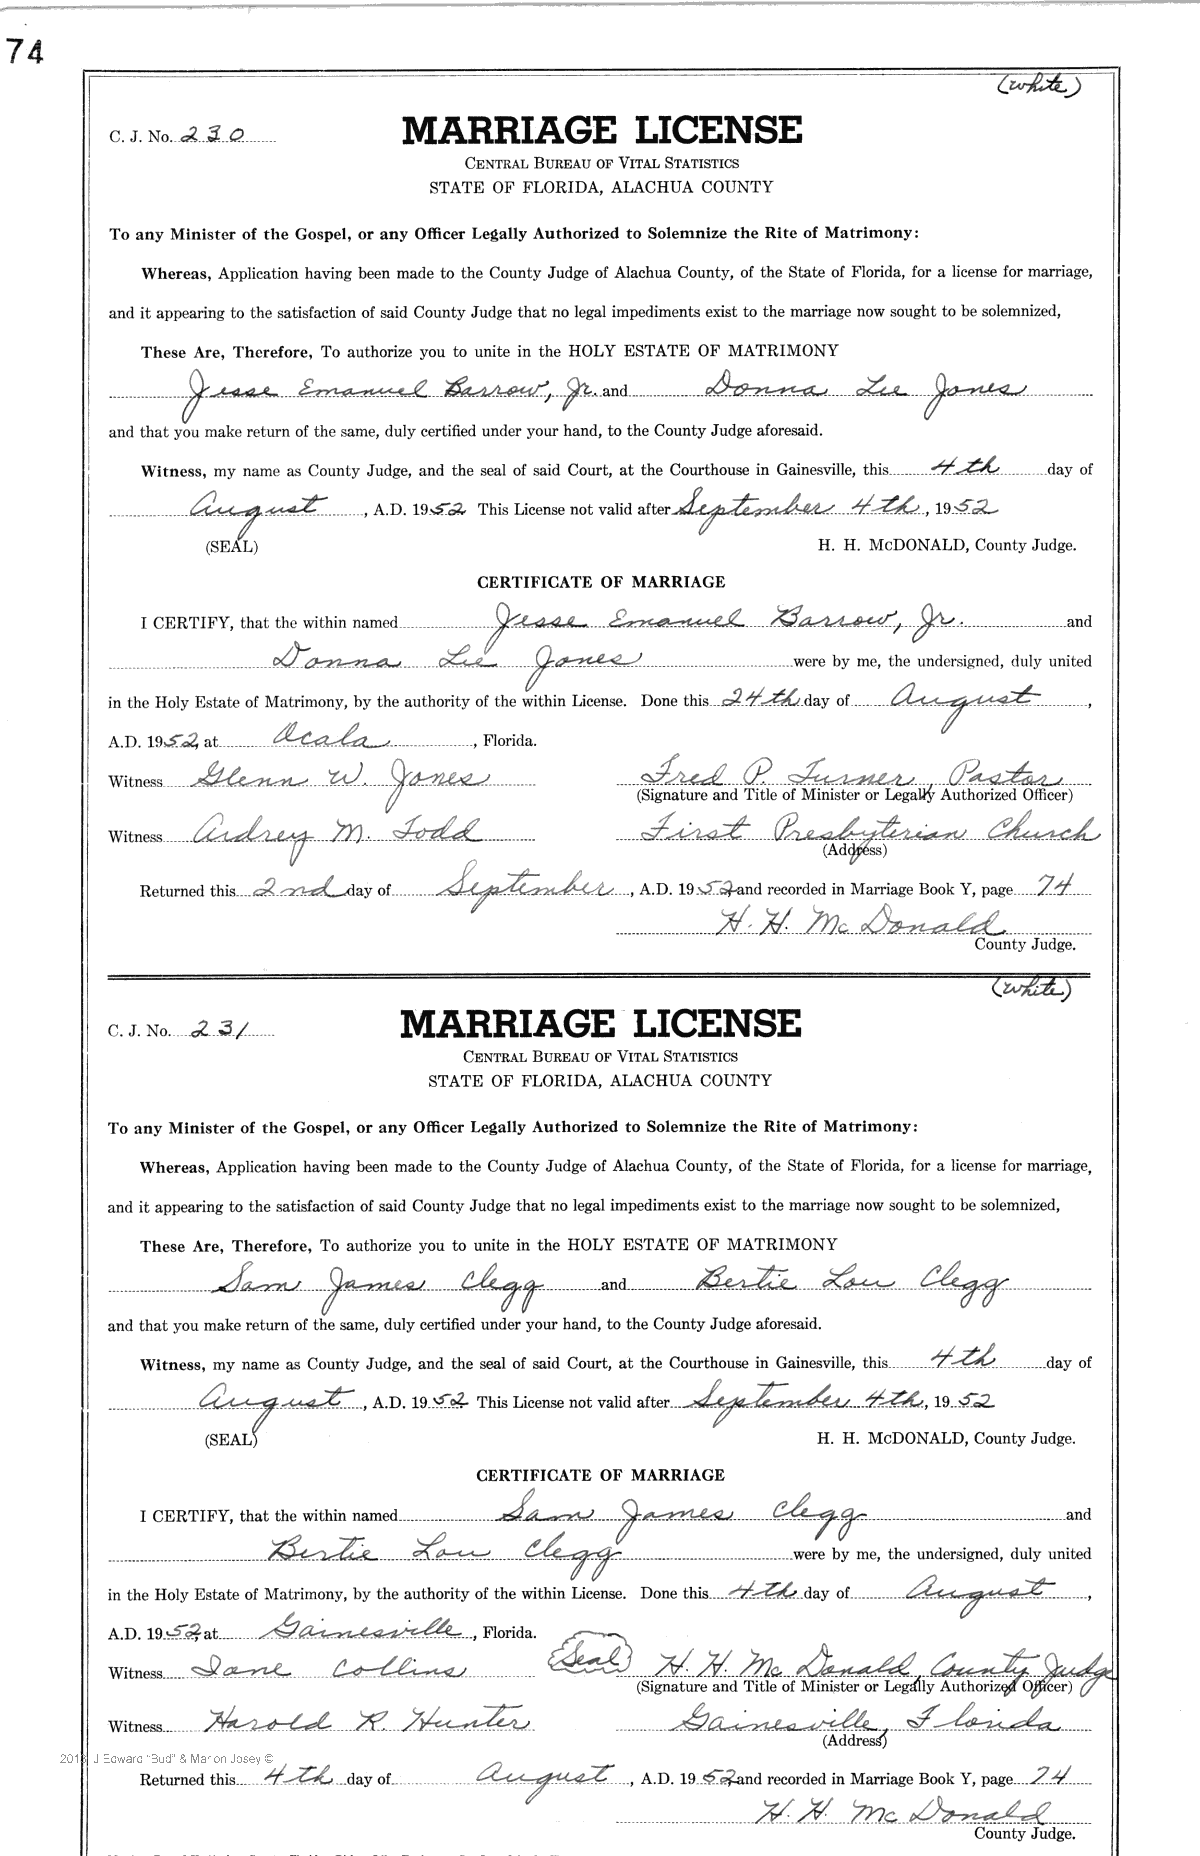 74
(white)
C. J. No. 230
MARRIAGE LICENSE
CENTRAL BUREAU OF VITAL STATISTICS
STATE OF FLORIDA, ALACHUA COUNTY
To any Minister of the Gospel, or any Officer Legally Authorized to Solemnize the Rite of Matrimony:
Whereas, Application having been made to the County Judge of Alachua County, of the State of Florida, for a license for marriage,
and it appearing to the satisfaction of said County Judge that no legal impediments exist to the marriage now sought to be solemnized,
These Are, Therefore, To authorize you to unite in the HOLY ESTATE OF MATRIMONY
Jesse Emanuel Barrow, Jr. and Donna Lee Jones
and that you make return of the same, duly certified under your hand, to the County Judge aforesaid.
Witness, my name as County Judge, and the seal of said Court, at the Courthouse in Gainesville, this 4th day of
August, A.D. 1952 This License not valid after September 4th, 1952
(SEAL) H. H. McDONALD, County Judge.
CERTIFICATE OF MARRIAGE
I CERTIFY, that the within named Jesse Emanuel Barrow, Jr. and
Donna Lee Jones were by me, the undersigned, duly united
in the Holy Estate of Matrimony, by the authority of the within License. Done this 24th day of August,
A.D. 1952, at Ocala, Florida.
Witness Glenn W. Jones Fred P. Turner, Pastor
(Signature and Title of Minister or Legally Authorized Officer)
Witness Ardrey M. Todd First Presbyterian Church
(Address)
Returned this 2nd day of September, A.D. 1952, and recorded in Marriage Book Y, page 74
H. H. McDonald
County Judge.
(white)
C. J. No. 231
MARRIAGE LICENSE
CENTRAL BUREAU OF VITAL STATISTICS
STATE OF FLORIDA, ALACHUA COUNTY
To any Minister of the Gospel, or any Officer Legally Authorized to Solemnize the Rite of Matrimony:
Whereas, Application having been made to the County Judge of Alachua County, of the State of Florida, for a license for marriage,
and it appearing to the satisfaction of said County Judge that no legal impediments exist to the marriage now sought to be solemnized,
These Are, Therefore, To authorize you to unite in the HOLY ESTATE OF MATRIMONY
Sam James Clegg and Bertie Lou Clegg
and that you make return of the same, duly certified under your hand, to the County Judge aforesaid.
Witness, my name as County Judge, and the seal of said Court, at the Courthouse in Gainesville, this 4th day of
August, A.D. 1952 This License not valid after September 4th, 1952
(SEAL) H. H. McDONALD, County Judge.
CERTIFICATE OF MARRIAGE
I CERTIFY, that the within named Sam James Clegg and
Bertie Lou Clegg were by me, the undersigned, duly united
in the Holy Estate of Matrimony, by the authority of the within License. Done this 4th day of August,
A.D. 1952, at Gainesville, Florida.
Witness Jane Collins Seal H. H. McDonald, County Judge
(Signature and Title of Minister or Legally Authorized Officer)
Witness Harold R. Hunter Gainesville, Florida
(Address)
J Edward "Bud" & Marion Josey ©
Returned this 4th day of August, A.D. 1952, and recorded in Marriage Book Y, page 74
H. H. McDonald
County Judge.